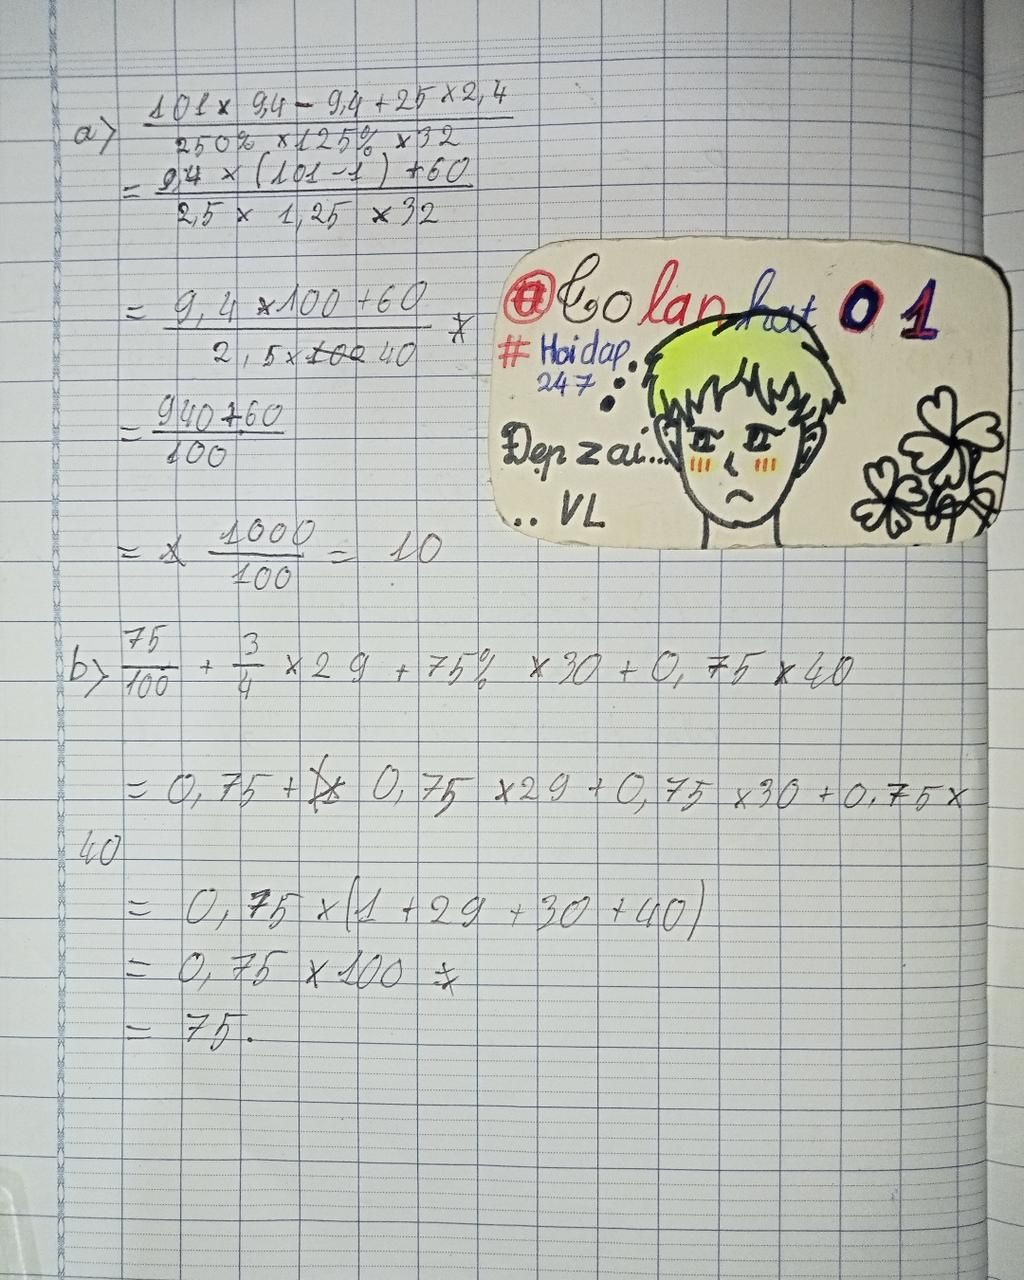 a) 101 × 9,4 - 9,4 + 25 × 2,4
250% × 125% × 32
= 9,4 × (101 - 1) + 60
2,5 × 1,25 × 32
= 9,4 × 100 + 60
2,5 × 100 40
= 940 + 60
100
= 1000
100 = 10
@Colanhat 01
# Hoidap
247
Đẹp zai...
.. VL
b) 75
100 + 3
4 × 29 + 75% × 30 + 0,75 × 40
= 0,75 + 0,75 × 29 + 0,75 × 30 + 0,75 ×
40
= 0,75 × (1 + 29 + 30 + 40)
= 0,75 × 100
= 75.